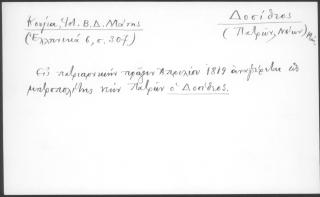 Κουγέα, Σωκ. Β. Δ. Μάνης
(Ἑλληνικά 6, σ. 307)
Δοσίθεος
(Πατρῶν, Νέων)
Εἰς πατριαρχικὴν πρᾶξιν Ἀπριλίου 1819 ἀναφέρεται ὡς
μητροπολίτης νέων Πατρῶν ὁ Δοσίθεος.